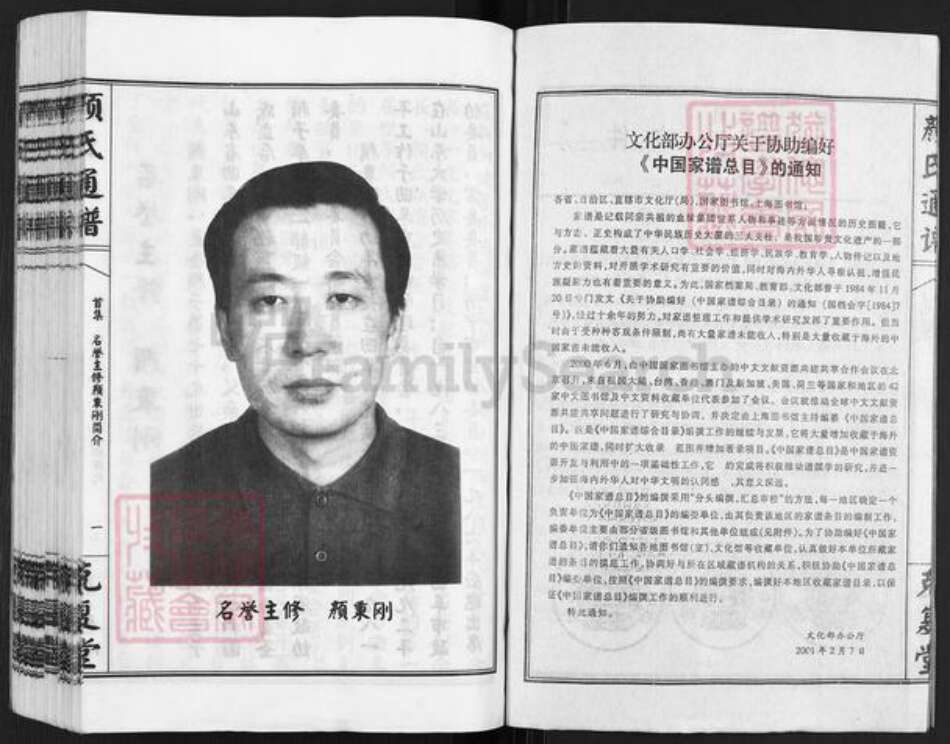 颜氏通谱
首集 名誉主修颜东刚简介 一
克复堂
名誉主修 颜东刚
文化部办公厅关于协助编好
《中国家谱总目》的通知
各省、自治区、直辖市文化厅(局)、国家图书馆、上海图书馆:
家谱是记载同宗共祖的血缘集团世系人物和事迹等方面情况的历史图籍,它
与方志、正史构成了中华民族历史大厦的三大支柱,是我国珍贵文化遗产的一部
分。家谱蕴藏着大量有关人口学、社会学、经济学、民族学、教育学、人物传记以及地
方史的资料,对开展学术研究有重要的价值,同时对海内外华人寻根认祖,增强民
族凝聚力也有着重要的意义。为此,国家档案局、教育部、文化部曾于1984年11月
20日专门发文《关于协助编好〈中国家谱综合目录〉的通知(国档会字[1984]7
号)》,经过十余年的努力,对家谱整理工作和提供学术研究发挥了重要作用。但当
时由于受种种客观条件限制,尚有大量家谱未能收入,特别是大量收藏于海外的中
国家谱未能收入。
2000年6月,由中国国家图书馆主办的中文文献资源共建共享合作会议在北
京召开,来自祖国大陆、台湾、香港、澳门及新加坡、美国、荷兰等国家和地区的42
家中文图书馆及中文资料收藏单位代表参加了会议。会议就推动全球中文文献资
源共建共享问题进行了研究与协调,并决定由上海图书馆主持编纂《中国家谱总
目》。该是《中国家谱综合目录》编撰工作的继续与发展,它将大量增加收藏于海外
的中国家谱,同时扩大收录 范围并增加著录项目。《中国家谱总目》是中国家谱资
源开发与利用中的一项基础性工作,它 的完成将积极推动谱牒学的研究,并进一
步加强海内外华人对中华文明的认同感 ,其意义深远。
《中国家谱总目》的编撰采用“分头编撰,汇总审校”的方法,每一地区确定一个
负责单位为《中国家谱总目》的编委单位,由其负责该地区的家谱条目的编制工作。
编委单位主要由部分省级图书馆和其他单位组成(见附件)。为了协助编好《中国家
谱总目》,请你们通知各地图书馆(室)、文化馆等收藏单位,认真做好本单位所藏家
谱的条目的摸底工作,协调好与所在区域藏谱机构的关系,积极协助《中国家谱总
目》编委单位,按照《中国家谱总目》的编撰要求,编撰好本地区收藏家谱目录,以保
证《中国家谱总目》编撰工作的顺利进行。
特此通知。
文化部办公厅
2001年2月7日
颜氏通谱
FamilySearch